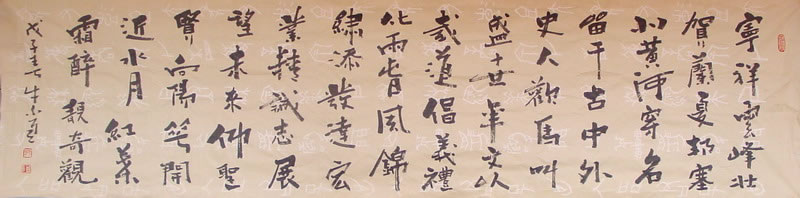 寧祥雲峰壯
賀蘭夏塞
北黃河寧名
留千古中外
史人歡馬叫
盛世年文以
載道倡義禮
化雨春風錦
繡添發達宏
業精誠志展
望未來仰聖
賢向陽花開
近水月紅葉
霜醉靚奇觀
戊子